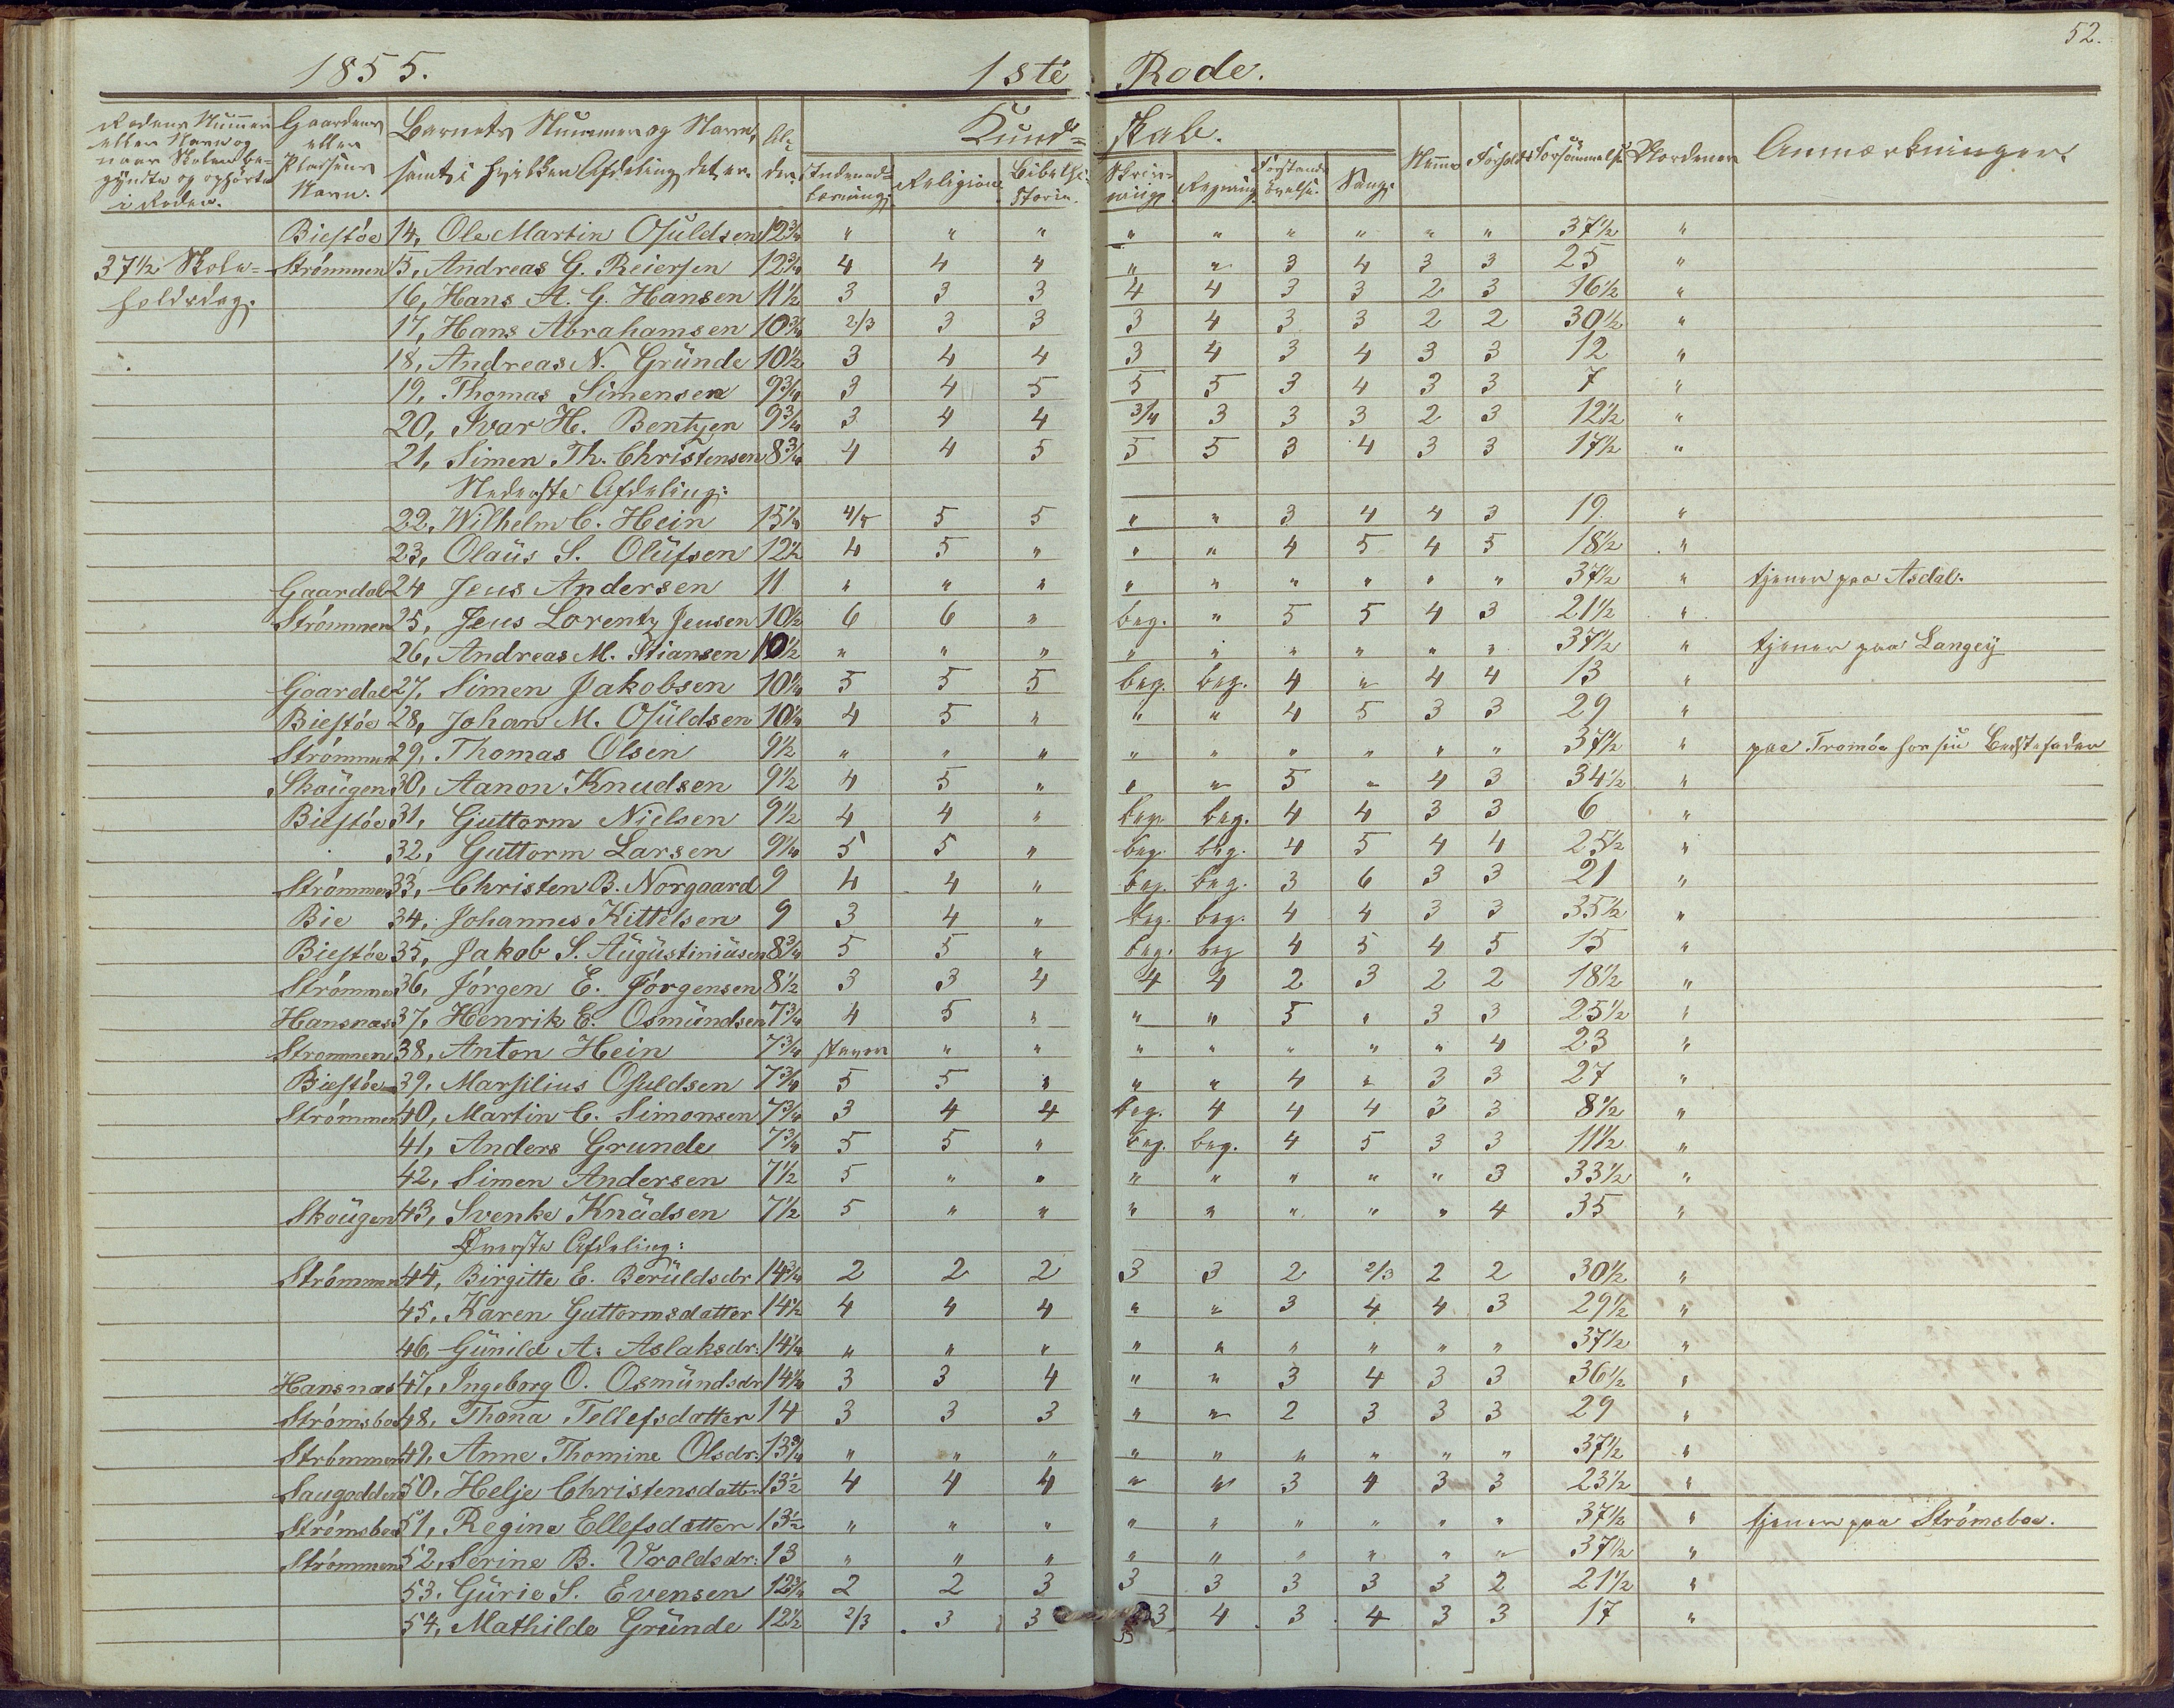 52.
1855. 1ste Rode.
Rodens Nummer eller Navn og naar Skolen begyndte og ophörte i Roden. Gaardens eller Pladsens Navn. Barnets Nummer og Navn, samt i hvilken Afdeling det er. Alder. Kundskab. Anmærkninger.
Indenadlæsning. Religion. Bibelhistorie. Skrivning Regning Forstandsövelse. Sang. Nemme Forhold Forsömmelse Ordenen
Biestöe 14, Ole Martin Osuldsen 12¾ " " " " " " " " " 37½ "
37½ Skole= Strömmen 15, Andreas G. Reiersen 12¾ 4 4 4 " " 3 4 3 3 25 "
holdsdag. 16, Hans A. G. Hansen 11½ 3 3 3 4 4 3 3 2 3 16½ "
17, Hans Abrahamsen 10¾ 2/3 3 3 3 4 3 3 2 2 30½ "
18, Andreas N. Gründe 10½ 3 4 4 3 4 3 4 3 3 12 "
19, Thomas Simensen 9¾ 3 4 5 5 5 3 4 3 3 7 "
20, Ivar H. Bentzen 9¾ 3 4 4 3/4 3 3 3 2 3 12½ "
21, Simen Th. Christensen 8¾ 4 4 5 5 5 3 4 3 3 17½ "
Nederste Afdeling:
22, Wilhelm C. Hein 15¼ 4/5 5 5 " " 3 4 4 3 19 "
23, Olaüs S. Olüfsen 12½ 4 5 " " " 4 5 4 5 18½ "
Gaardal 24 Jens Andersen 11 " " " " " " " " " 37½ " tjener paa Asdal.
Strömmen 25, Jens Lorentz Jensen 10½ 6 6 " beg. " 5 5 4 3 21½ "
26, Andreas M. Stiansen 10½ " " " " " " " " " 37½ " tjener paa Langey
Gaardal 27, Simen Jakobsen 10¼ 5 5 5 beg. beg. 4 " 4 4 13 "
Biestöe 28, Johan M. Osüldsen 10¼ 4 5 " " " 4 5 3 3 29 "
Strömmen 29, Thomas Olsen 9½ " " " " " " " " " 37½ " paa Tromöe hos sin Bedstefader
Skougen 30, Aanon Knudsen 9½ 4 5 " " " 5 " 4 3 34½ "
Biestöe 31, Guttorm Nielsen 9½ 4 4 " beg. beg. 4 4 3 3 6 "
32, Guttorm Larsen 9¼ 5 5 " beg. beg. 4 5 4 4 25½ "
Strömmen 33, Christen B. Norgaard 9 4 4 " beg. beg. 3 6 3 3 21 "
Bie 34, Johannes Kittelsen 9 3 4 " beg. beg. 4 4 3 3 35½ "
Biestöe 35, Jakob S. Augüstiniüsen 8¾ 5 5 " beg. beg 4 5 4 5 15 "
Strömmen 36, Jörgen E. Jörgensen 8½ 3 3 4 4 4 2 3 2 2 18½ "
Hansnæs 37, Henrik E. Osmündsen 7¾ 4 5 " " " 5 " 3 3 25½ "
Strommen 38, Anton Hein 7¾ staver " " " " " " " 4 23 "
Biestöe 39, Marsilius Osuldsen 7¾ 5 5 " " " 4 " 3 3 27 "
Strömmen 40, Martin C. Simonsen 7¾ 3 4 4 beg. 4 4 4 3 3 8½ "
41, Anders Grunde 7¾ 5 5 " beg. beg. 4 5 3 3 11½ "
42, Simen Andersen 7½ 5 " " " " " " " 3 33½ "
Skougen 43, Svenke Knüdsen 7½ 5 " " " " " " " 4 35 "
Øverste Afdeling:
Strömmen 44, Birgitte E. Berüldsdr 14¾ 2 2 2 3 3 2 2/3 2 2 30½ "
45, Karen Guttormsdatter 14½ 4 4 4 " " 3 4 4 3 29½ "
46, Günild A. Aslaksdr: 14¼ " " " " " " " " " 37½ "
Hansnæs 47, Ingeborg O. Osmündsdr 14¼ 3 3 4 " " 3 4 3 3 36½ "
Strömsboe 48, Thona Tellefsdatter 14 3 3 3 " " 2 3 3 3 29 "
Strömmen 49, Anne Thomine Olsdr: 13¾ " " " " " " " " " 37½ "
Saugodden 50, Helje Christensdatter 13½ 4 4 4 " " 3 4 3 3 23½ "
Strömsboe 51, Regine Ellefsdatter 13½ " " " " " " " " " 37½ " tjener paa Strömsboe.
Strömmen 52, Serine B. Vraldsdr: 13 " " " " " " " " " 37½ "
53, Gürie S. Evensen 12¾ 2 2 3 3 3 3 3 3 2 21½ "
54, Mathilde Gründe 12½ 2/3 3 3 3 4 3 4 3 3 17 "